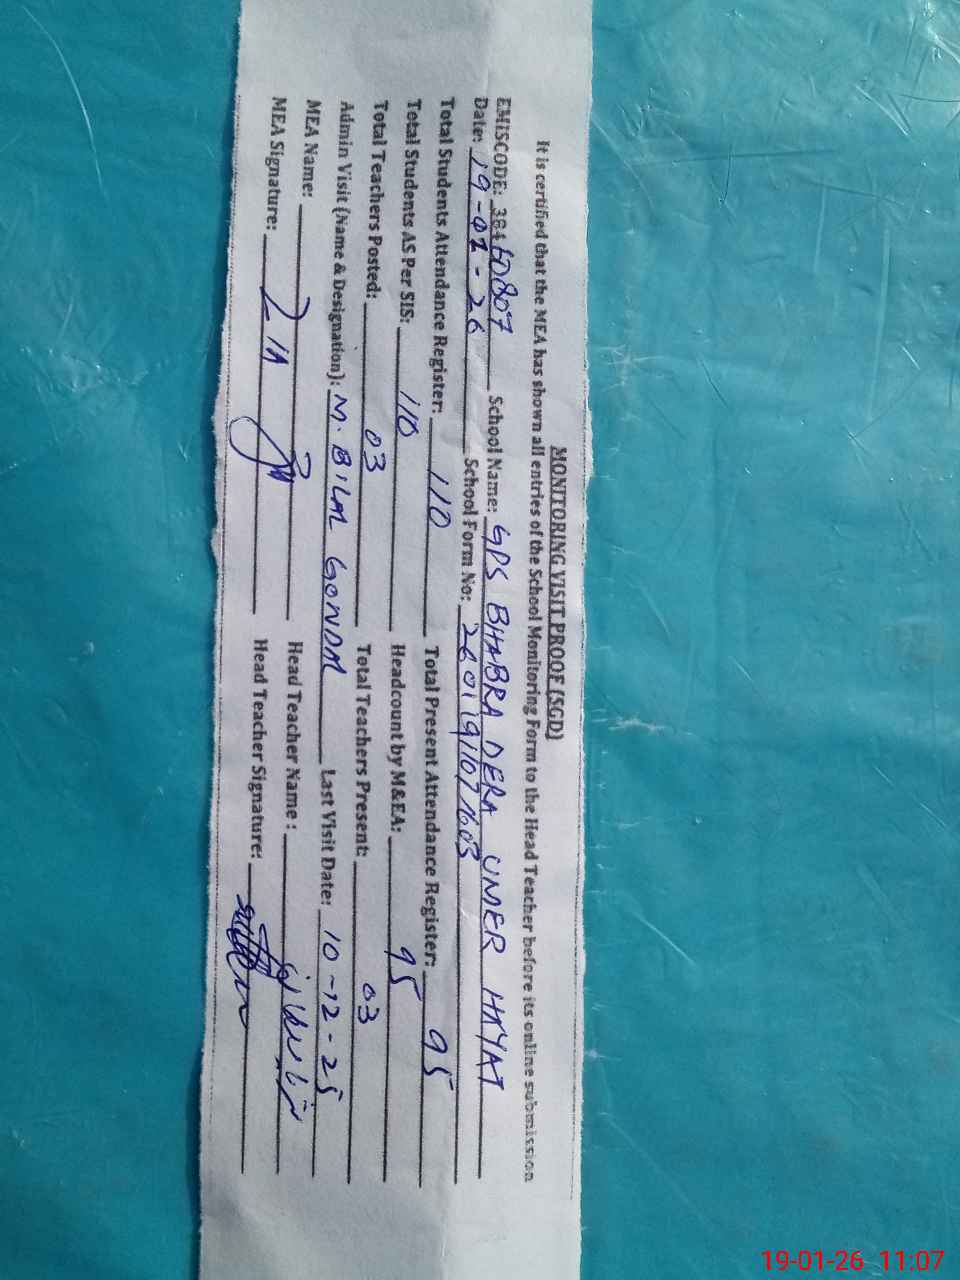 MONITORING VISIT PROOF (SGD)
It is certified that the MEA has shown all entries of the School Monitoring Form to the Head Teacher before its online submission
EMISCODE: 384 School Name: GPS BHABRA DERA UMER HAYAT
Date: 19-01-26 School Form No: 2601191107
Total Students Attendance Register: 110 Total Present Attendance Register: 95
Total Students AS Per SIS: 110 Headcount by M&EA: 95
Total Teachers Posted: 03 Total Teachers Present: 03
Admin Visit (Name & Designation): M. BILAL GONDAL Last Visit Date: 10-12-25
MEA Name: Head Teacher Name:
MEA Signature: Head Teacher Signature:
19-01-26 11:07